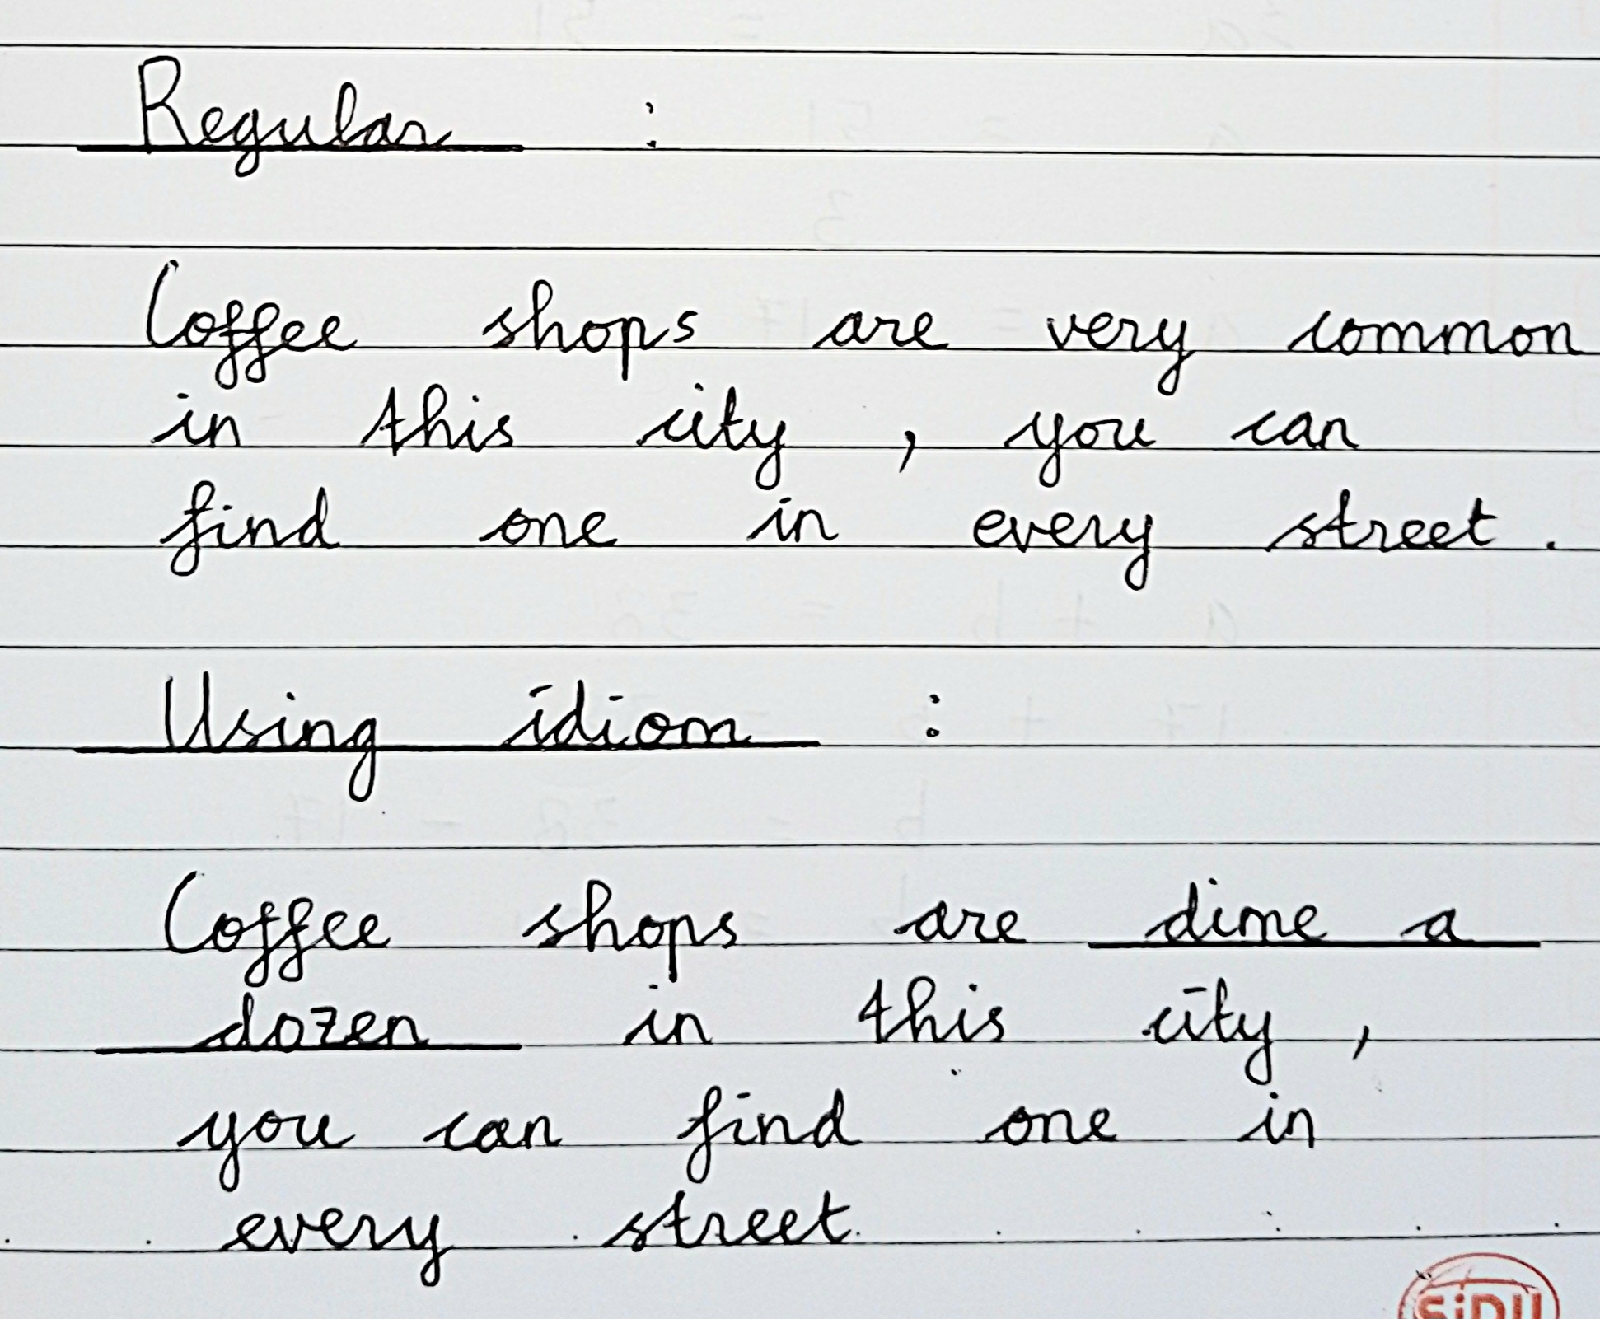 Regular :
Coffee shops are very common
in this city , you can
find one in every street .
Using idiom :
Coffee shops are dime a
dozen in this city ,
you can find one in
every street.
SiDU